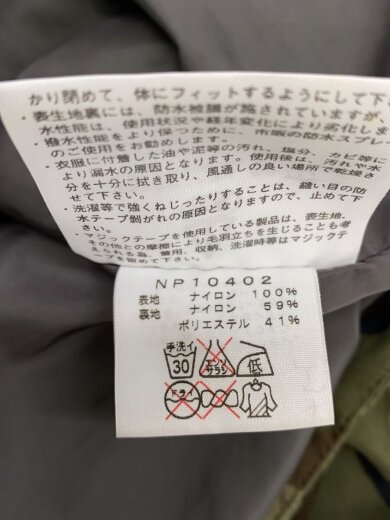 かり閉めて、体にフィットするようにして下
・表生地裏には、防水被膜が施されていますが、
水性能は、使用状況や経年変化により劣化しま
・撥水性能をより保つために、市販の防水スプレー
のご使用をお勧めします。
・衣服に付着した油や泥等の汚れ、塩分、カビ等に
より漏水の原因となります。使用後は、汚れや
分を十分に拭き取り、風通しの良い場所で乾燥さ
せて下さい。
・洗濯等で強くねじったりすることは、縫い目の防
水テープ剝がれの原因となりますので、止めて下
さい。
・マジックテープを使用している製品は、表生地、
その他との摩擦により毛羽立ちを生じることも考
えられる為、着用、収納、洗濯時等はマジックテ
ープを閉めて下さい。
NP10402
表地 ナイロン 100%
裏地 ナイロン 59%
ポリエステル 41%
手洗イ
30
エンソ
サラシ
低
ドライ